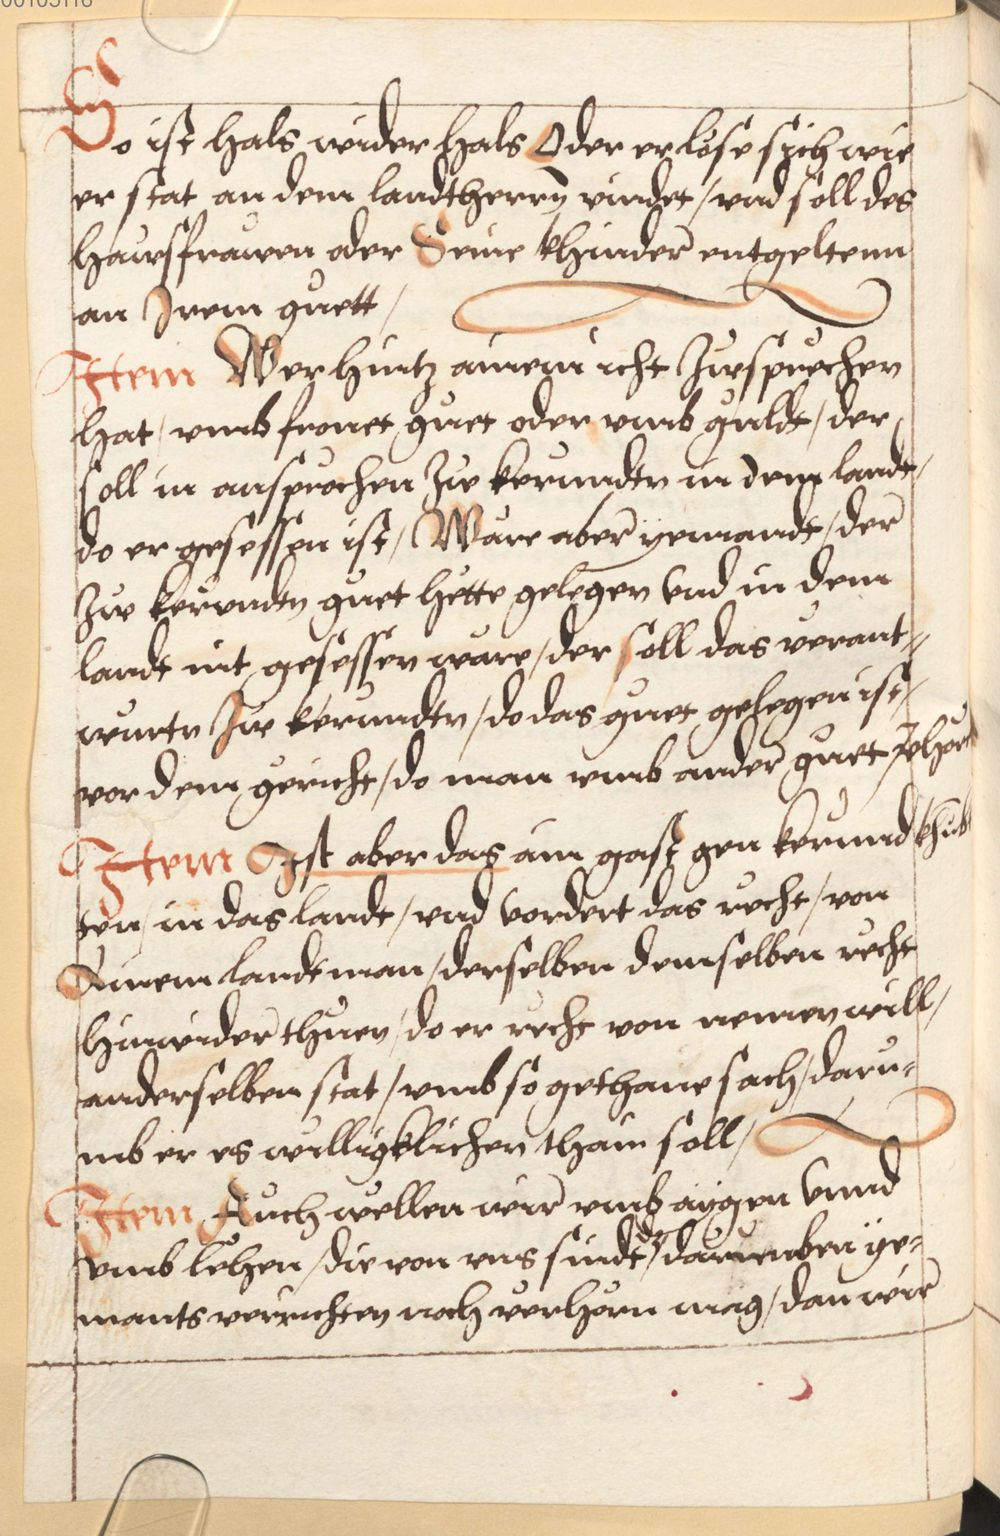 00105116
So ist hals wider hals Oder er löse sich wie
er stat an dem landtherrn vindet / vnd soll des
hausfrawen oder Seine khinder entgeltenn
an Irem guett /
Item Wer hintz ainem icht Zwsprechen
hat / vmb fronet guet oder vmb guldt / der
soll in ansprechen Zw kerrndtn in dem landt /
do er gesessen ist / Wäre aber yemandt / der
Zw kerrndtn guet hette gelegen vnd in dem
landt nit gesessen ware / der soll das verant=
wurtn Zw kerrndtn / do das guet gelegen ist /
vor dem gericht / do man vmb ander guet
Item Ist aber das ain gast gen kernnd khumbt
ten / in das landt / vnd vordert das recht / von
Ainem landtman / derselben demselben recht
hinwider thuen / do er recht von nemen will /
anderselben stat / vmb so gethane sach / daru=
mb er es willigklichen thain soll /
Item Auch wellen wir vmb aygen vnnd
vmb lehen / die von vns sindt / das darumben ye=
mants verrichten noch verhörn mag / dan wir